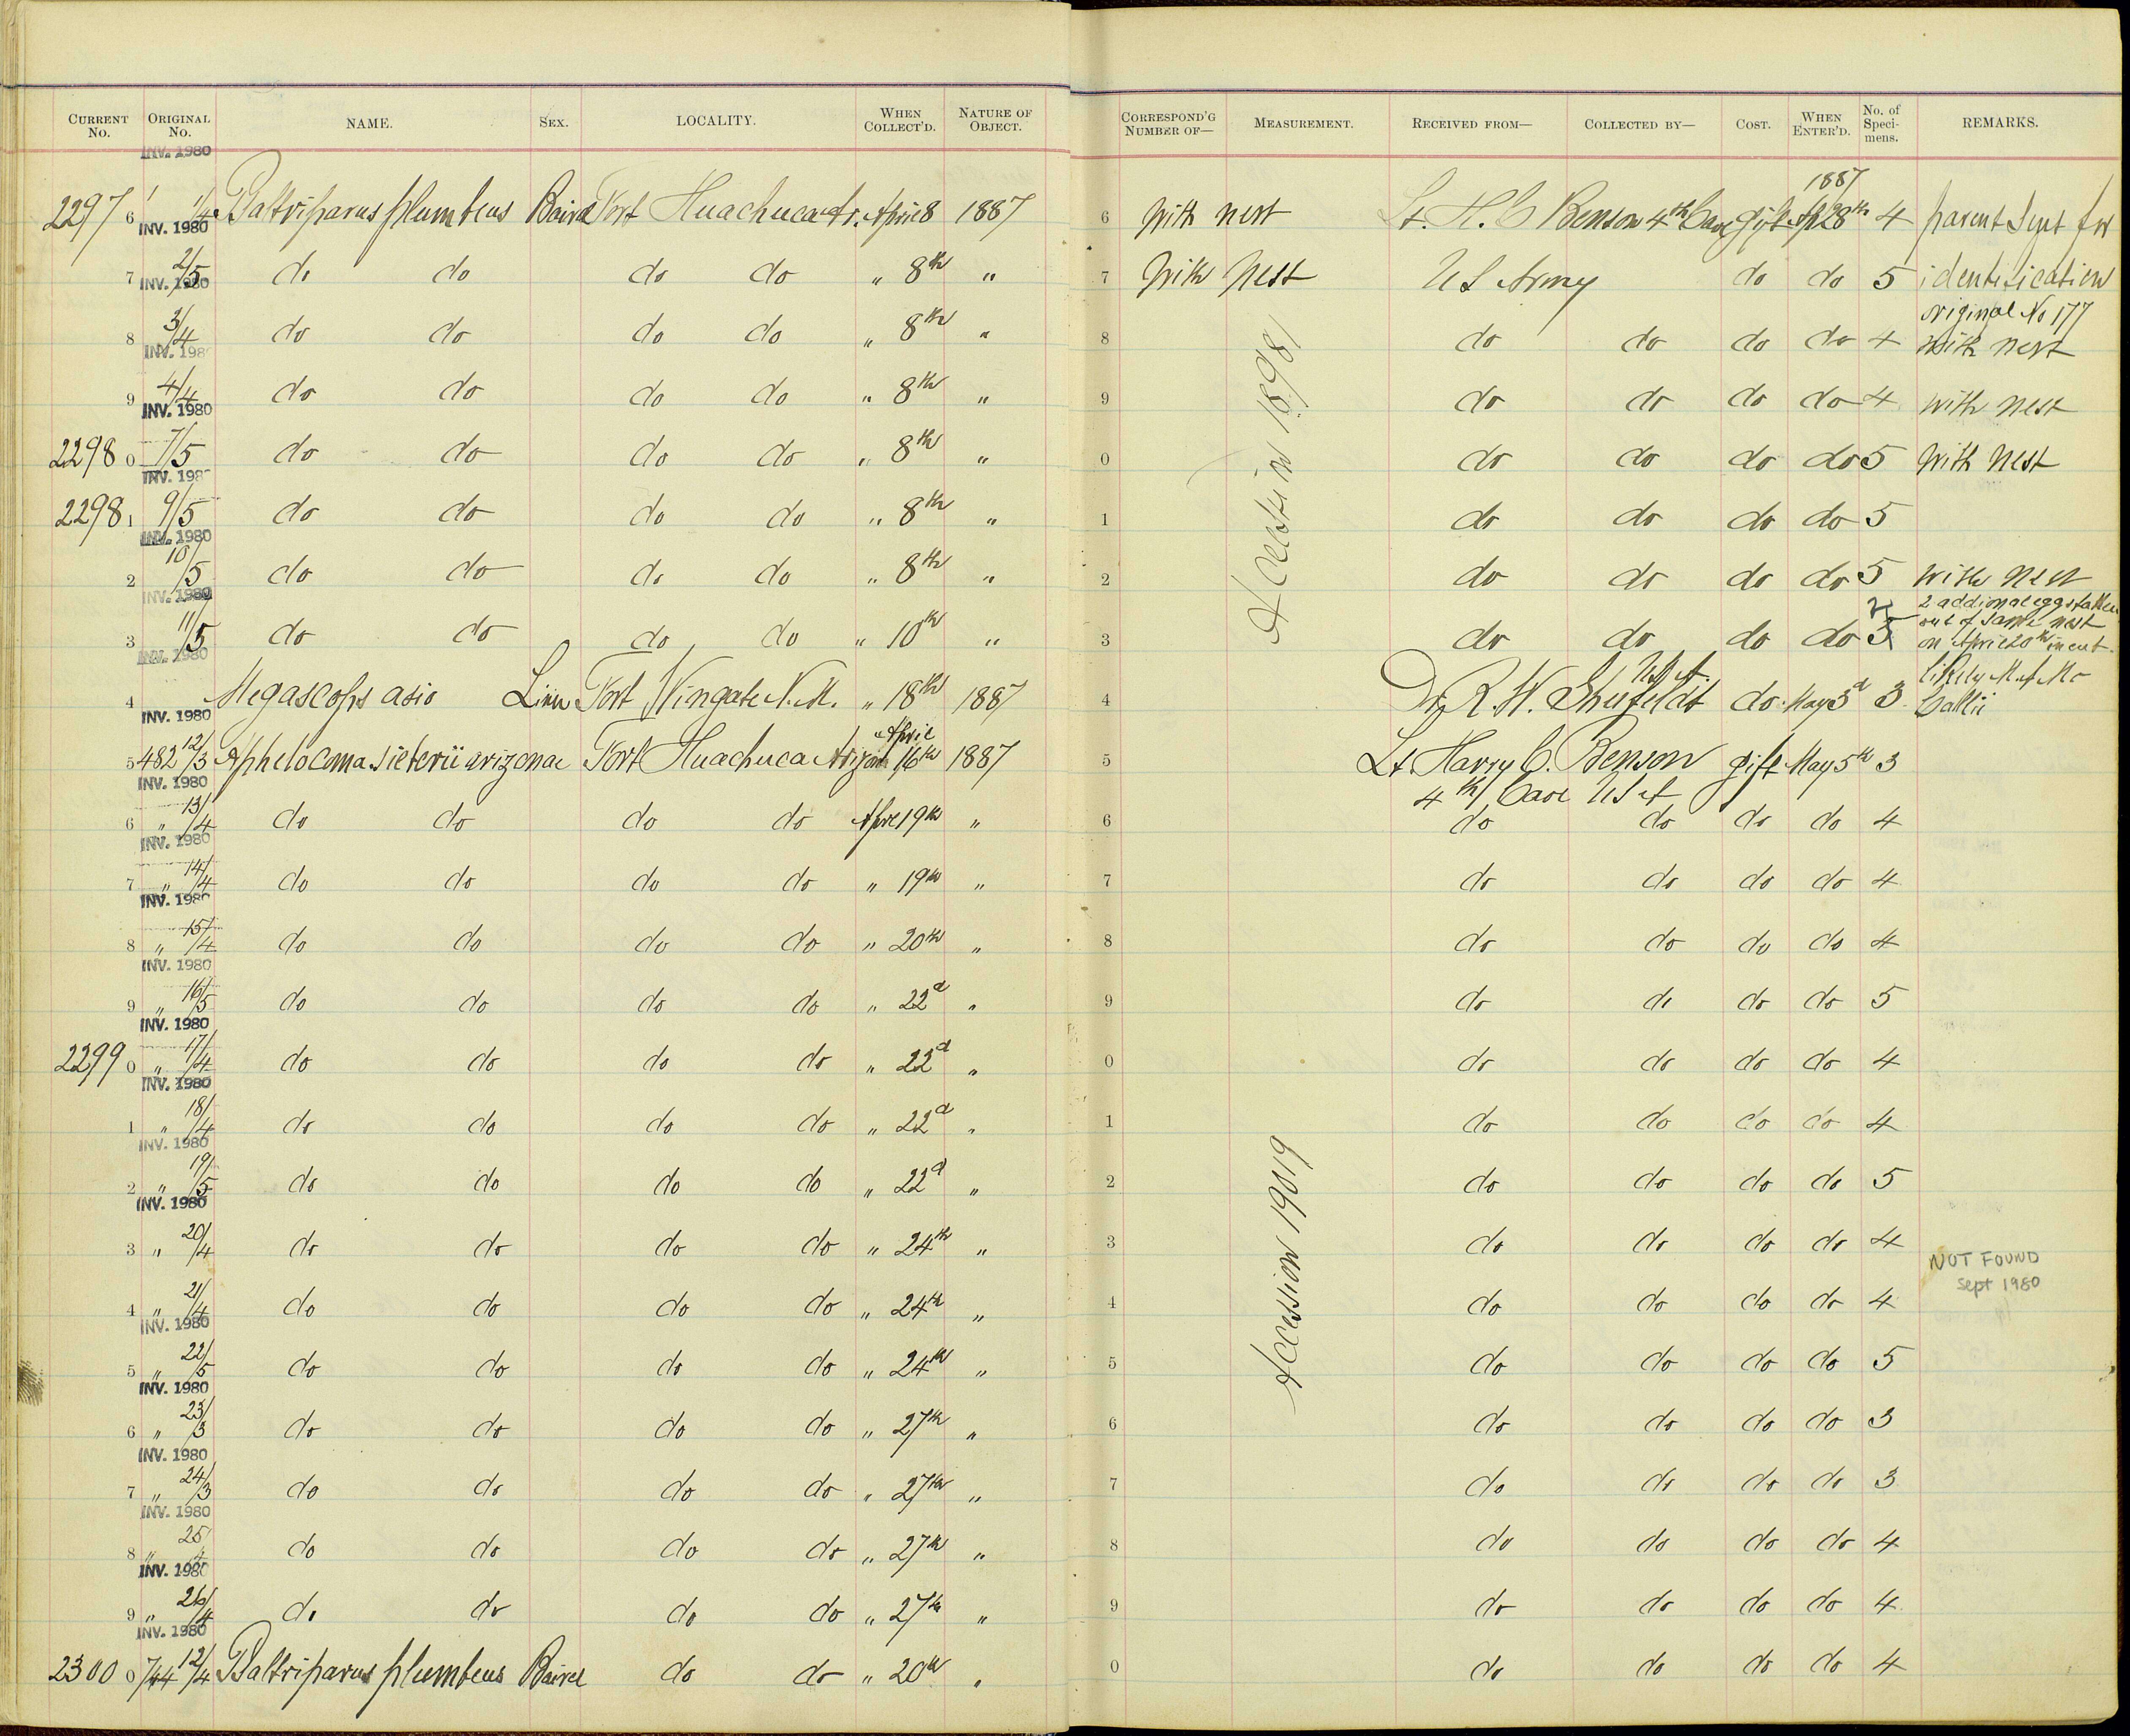 CURRENT No. ORIGINAL No. NAME. SEX. LOCALITY. WHEN COLLECT'D. NATURE OF OBJECT. CORRESPOND'G NUMBER OF— MEASUREMENT. RECEIVED FROM— COLLECTED BY— COST. WHEN ENTER'D. No. of Specimens. REMARKS.
INV. 1980
1887
2297 6 1/4 Psaltriparus plumbeus Baird Fort Huachuca Ar. April 8 1887 6 With nest Lt. H. C Benson 4th Cav gift Ap 28th 4 parent sent for
INV. 1980
7 2/5 do do do do " 8th " 7 With Nest U S Army do do 5 identification
INV. 1980
original No 177
8 3/4 do do do do " 8th " 8 do do do do 4 with nest
INV. 1980
9 4/4 do do do do " 8th " 9 do do do do 4 with nest
INV. 1980
2298 0 7/5 do do do do " 8th " 0 do do do do 5 With Nest
INV. 198
2298 1 9/5 do do do do " 8th " 1 do do do do 5
INV. 1980
2 10/5 do do do do " 8th " 2 do do do do 5 with nest
INV. 1980
Accession 18981
3 11/5 do do do do " 10th " 3 do do do do 5 2 2 addional eggs taken
out of same nest
on April 20th incut.
INV. 1980
4 Megascops asio Linn Fort Wingate N. M. " 18th 1887 4 Dr R. W. Shufeldt U S A. do May 3d 3 likely M. f. Mc
Callii
INV. 1980
5 482 12/3 Aphelocoma sieberii arizonae Fort Huachuca Arizona April 16th 1887 5 Lt. Harry C. Benson gift May 5th 3
4th Cav U S A
INV. 1980
6 " 13/4 do do do do April 19th " 6 do do do do 4
INV. 1980
7 " 14/4 do do do do " 19th " 7 do do do do 4
INV. 1980
8 " 15/4 do do do do " 20th " 8 do do do do 4
INV. 1980
9 " 16/5 do do do do " 22d " 9 do do do do 5
INV. 1980
2299 0 " 17/4 do do do do " 22d " 0 do do do do 4
INV. 1980
1 " 18/4 do do do do " 22d " 1 do do do do 4
INV. 1980
2 " 19/5 do do do do " 22d " 2 do do do do 5
INV. 1980
Accession 19019
3 " 20/4 do do do do " 24th " 3 do do do do 4 NOT FOUND
Sept 1980
4 " 21/4 do do do do " 24th " 4 do do do do 4
INV. 1980
5 " 22/5 do do do do " 24th " 5 do do do do 5
INV. 1980
6 " 23/3 do do do do " 27th " 6 do do do do 3
INV. 1980
7 " 24/3 do do do do " 27th " 7 do do do do 3
INV. 1980
8 " 25/4 do do do do " 27th " 8 do do do do 4
INV. 1980
9 " 26/4 do do do do " 27th " 9 do do do do 4
INV. 1980
2300 0 744 12/4 Psaltriparus plumbeus Baird do do " 20th " 0 do do do do 4